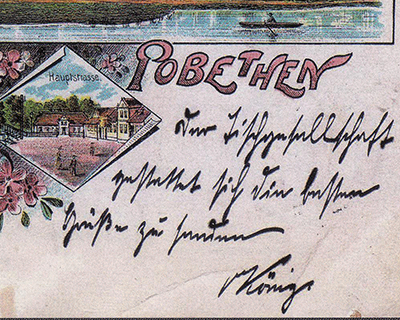 POBETHEN
Hauptstrasse.
Der Tischgesellschaft
gestattet sich die besten
Grüße zu senden
König.